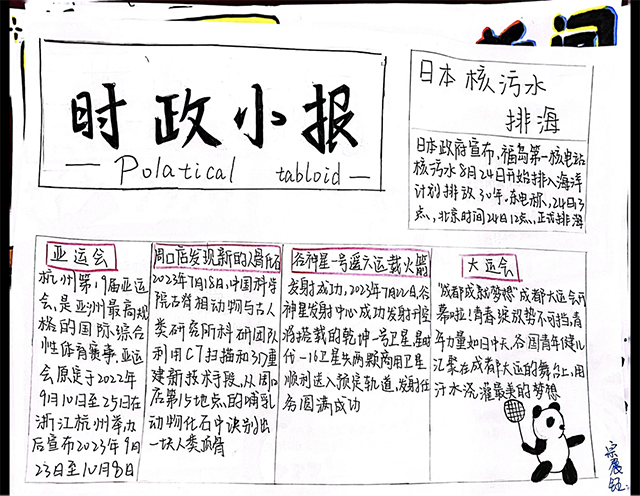 时政小报
— Polatical tabloid —
日本核污水
排海
日本政府宣布，福岛第一核电站
核污水8月24日开始排入海洋
计划排放30年。东电称，24日13
点，北京时间24日12点，正式排海
亚运会
杭州第19届亚运
会，是亚洲最高规
格的国际综合
性体育赛事。亚运
会原定于2022年
9月10日至25日在
浙江杭州举办
后宣布2023年9月
23日至10月8日
周口店发现新的人骨化石
2023年7月18日，中国科学
院古脊椎动物与古人
类研究所科研团队
利用CT扫描和3D重
建新技术手段，从周口
店第15地点的哺乳
动物化石中识别出
一块人类顶骨
谷神星一号遥六运载火箭
发射成功，2023年7月22日，谷
神星发射中心成功发射升空
将搭载的乾坤一号卫星、星时
代-16卫星共两颗商用卫星
顺利送入预定轨道，发射任
务圆满成功
大运会
"成都成就梦想"成都大运会开
幕啦！青春绽放势不可挡，青
年力量如日中天，各国青年健儿
汇聚在成都大运的舞台上，用
汗水浇灌最美的梦想